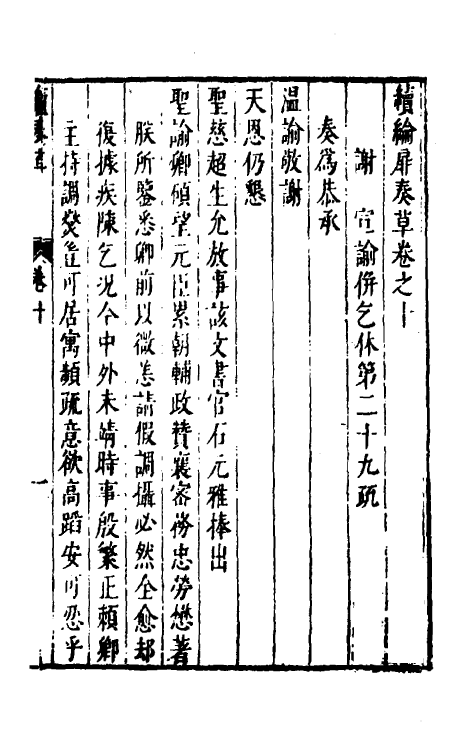 續綸扉奏草卷之十
謝　宣諭併乞休第二十九疏
奏爲恭承
溫諭敬謝
天恩仍懇
聖慈超生允放事該文書官石元雅捧出
聖諭卿碩望元臣累朝輔政贊襄密務忠勞懋著
朕所鑒悉卿前以微恙請假調攝必然全愈却
復據疾陳乞況今中外未靖時事殷繁正賴卿
主持調燮豈可居寓頻疏意欲高蹈安可忍乎
續奏草
卷十
一